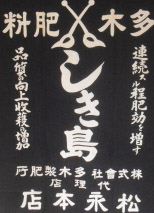 多木肥料
連続スル程肥効を増す
しき島
品質を向上収穫を増加
株式會社多木製肥所
代理店
松永本店